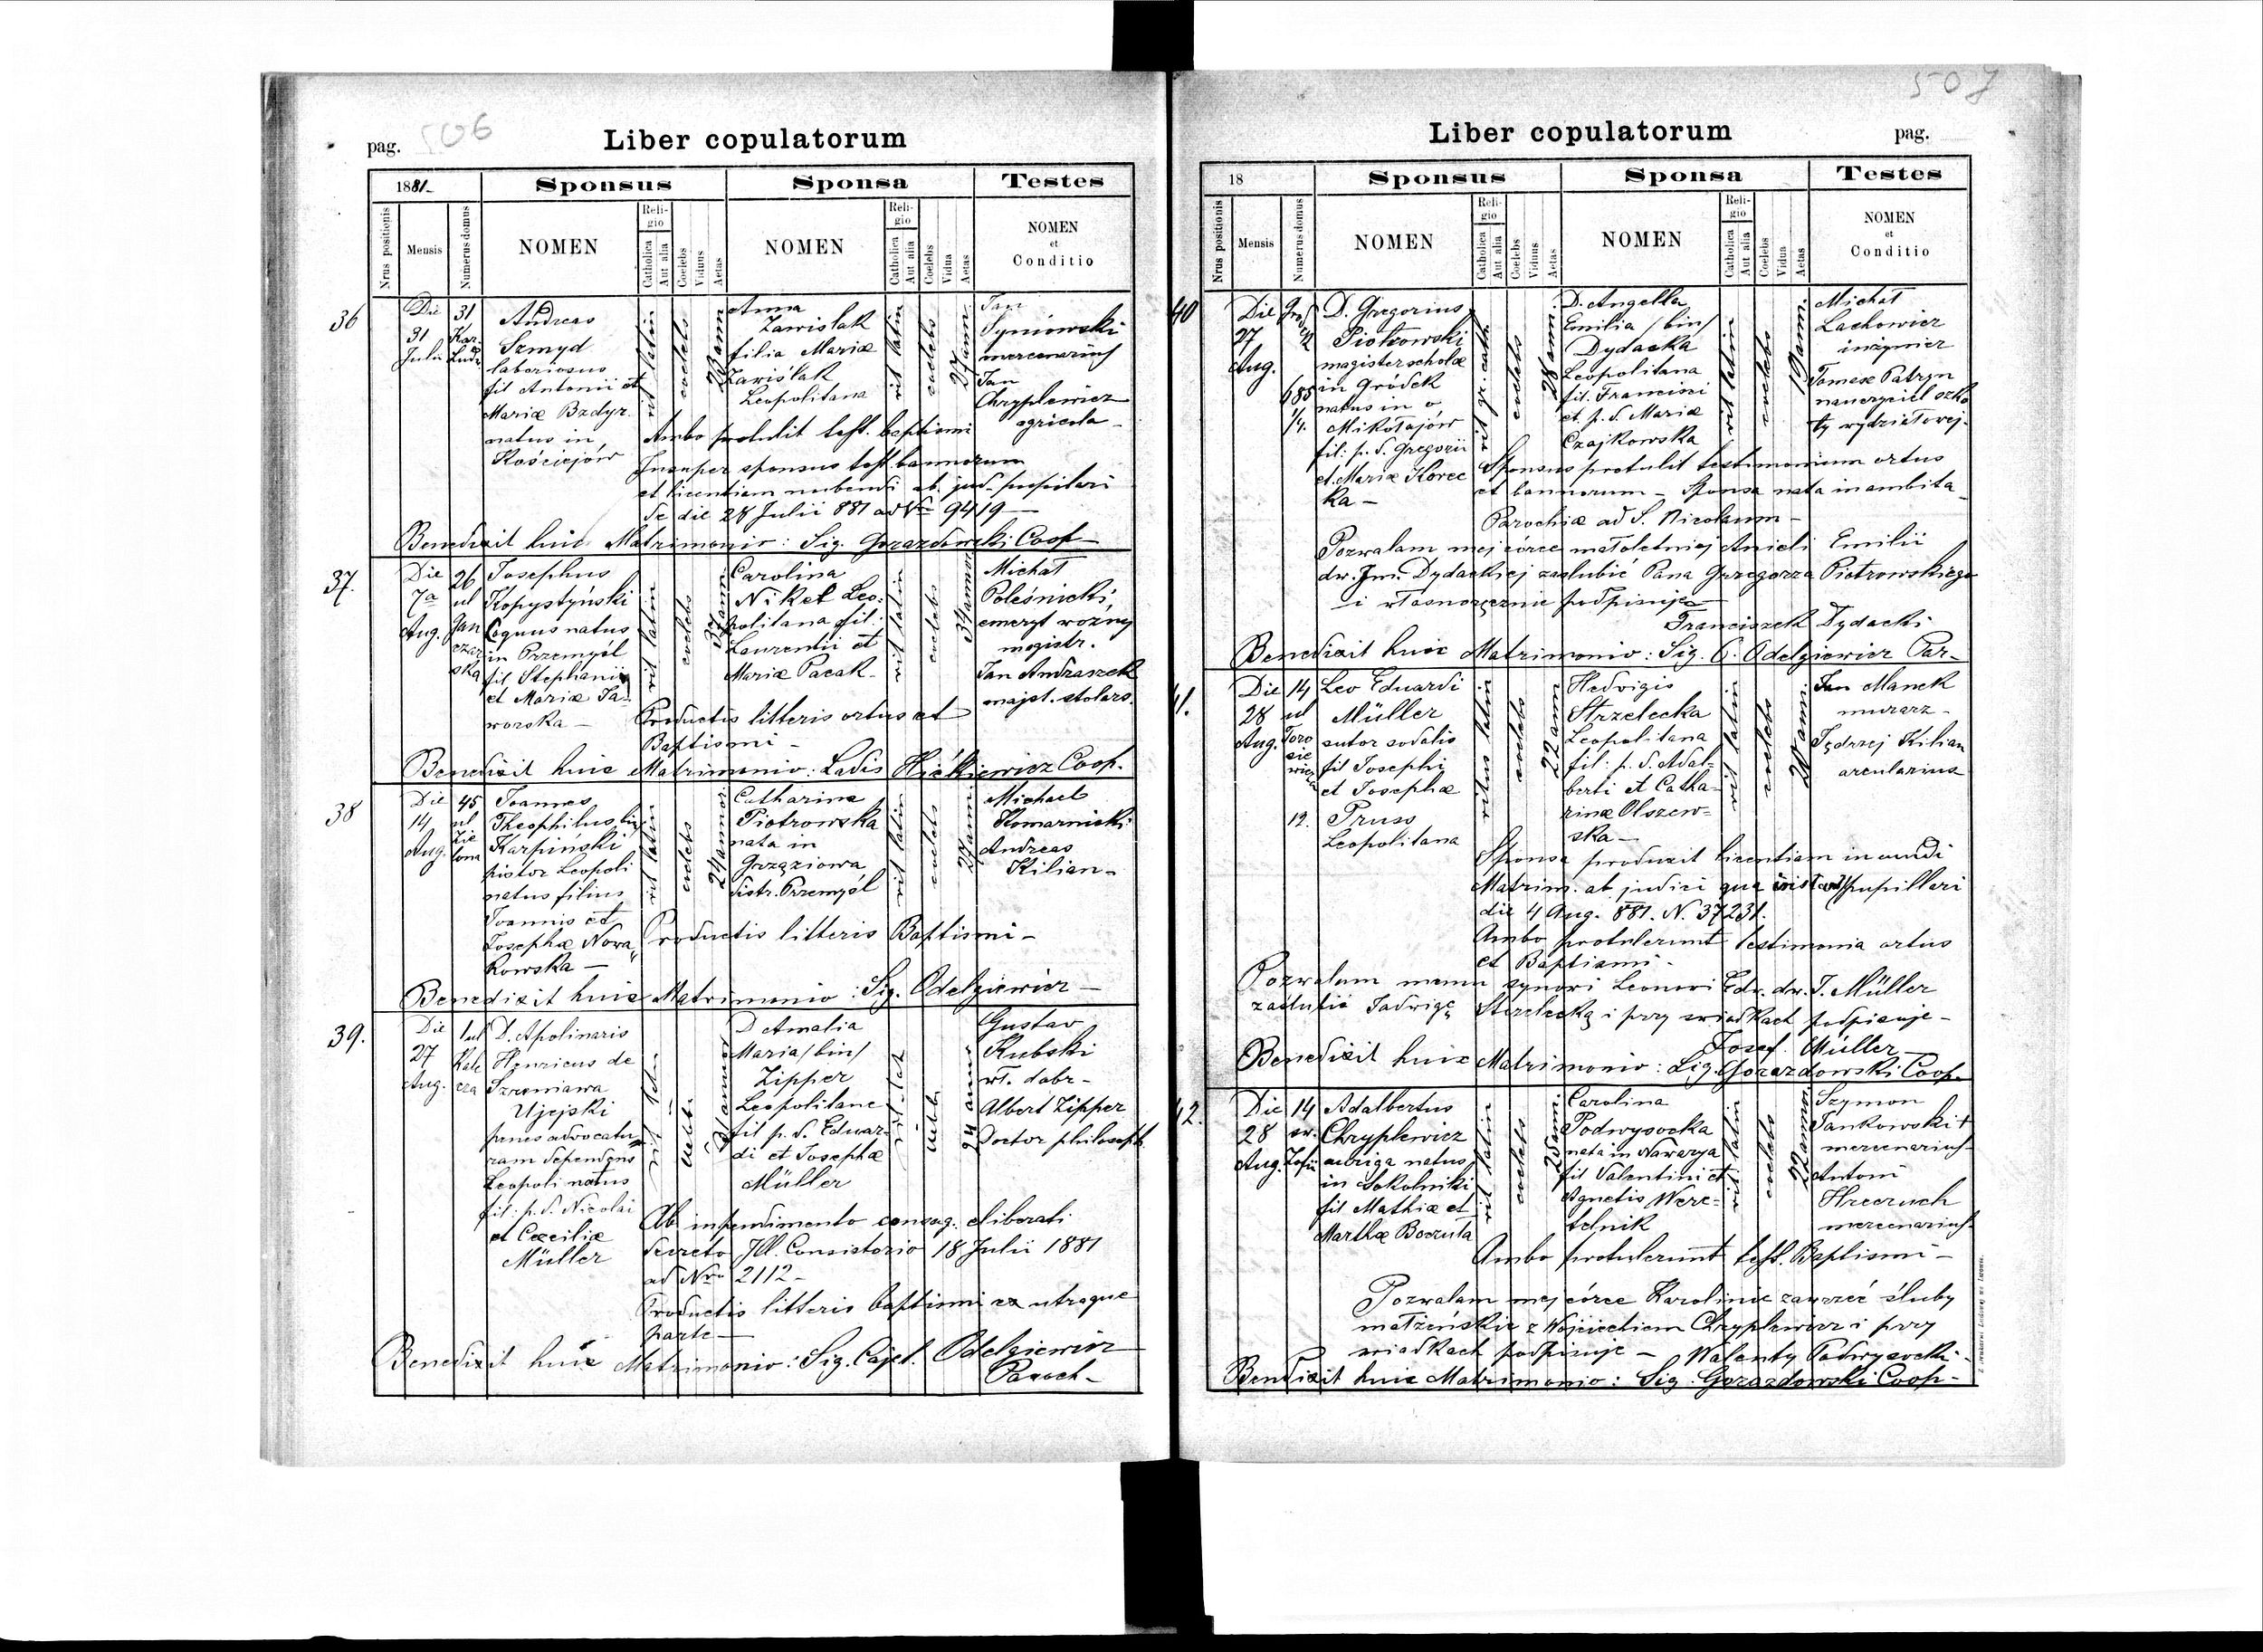 506
pag.
Liber copulatorum
1881
Sponsus
Sponsa
Testes
Nrus positionis
Mensis
Numerus domus
NOMEN
Religio
Catholica
Aut alia
Coelebs
Viduus
Aetas
NOMEN
Religio
Catholica
Aut alia
Coelebs
Vidua
Aetas
NOMEN
et
Conditio
36
Die
31
Julii
31
Kar.
Lud.
Andreas
Szmyd
laboriosus
fil Antonii et
Mariæ Bzdyr
natus in
Kościejów
rit latin
coelebs
Anna
Zawislak
filia Mariæ
Zawiślak
Leopolitana
rit latin
coelebs
27 ann.
Jan
Syniowski
mercenarius
Jan
Chryplewicz
agricola
Ambo protulit test. baptismi
Insuper sponsus test. bannorum
et licentiam nubendi ab. jud. pupilari
de die 28 Julii 881 ad Nr 9419
Benedixit huic Matrimonio: Sig. Gorazdowski Coop
37.
Die
7a
Aug.
26
ul
Jan
czar
ska
Josephus
Kopystyński
Coquus natus
in Przemyśl
fil Stephanii
et Mariæ Ja-
worska
rit latin
coelebs
Carolina
Nikel Leo-
politana fil.
Laurentii et
Mariæ Pacak
rit latin
coelebs
34 annor
Michał
Poleśnicki
emeryt woźny
magistr.
Jan Andraszek
majst. stolars.
Productis litteris ortus et
Baptismi
Benedixit huic Matrimonio: Ladis Coop.
38
Die
14
Aug.
45
ul
Zie
lona
Joannes
Theophilus bin
Karpiński
pistor Leopoli
natus filius
Joannis et
Josephæ Nowa
kowska
rit latin
coelebs
24 annor
Catharina
Piotrowska
nata in
Grząziowa
distr. Przemyśl
rit latin
coelebs
27 ann.
Michael
Komarnicki
Andreas
Kilian
Productis litteris Baptismi
Benedixit huic Matrimonio: Sig. Odelgiewicz
39.
Die
27
Aug.
1 ul
Kale
cza
D. Apolinaris
Henricus de
Szreniawa
Ujejski
penes advocatu
ram dependens
Leopoli natus
fil: p. d. Nicolai
et Cæciliæ
Müller
D Amalia
Maria /bin/
Zipper
Leopolitane
fil p. d. Eduar-
di et Josephæ
Müller
rit. lat
coeleb.
24 annor
Gustav
Rubski
wł. dobr
Albert Zipper
Doctor philosoph.
Ab impendimento consag. eliberati
decreto Ill. Consistorio 18 Julii 1881
ad Nrm 2112
Productis litteris baptismi ex utraque
parte
Benedixit huic Matrimonio: Sig. Cajet. Odelgiewicz
Paroch
507
Liber copulatorum
pag.
18
Sponsus
Sponsa
Testes
Nrus positionis
Mensis
Numerus domus
NOMEN
Religio
Catholica
Aut alia
Coelebs
Viduus
Aetas
NOMEN
Religio
Catholica
Aut alia
Coelebs
Vidua
Aetas
NOMEN
et
Conditio
40
Die
27
Aug.
D. Gregorius
Piotrowski
magister scholæ
in Gródek
natus in
Mikołajów
fil: p. d. Gregorii
et. Mariæ Korec
ka
rit gr. cath
coelebs
28 ann.
D. Angella
Emilia /bin/
Dydacka
Leopolitana
fil. Francisci
et p. d. Mariæ
Czajkowska
rit latin
coelebs
19 ann.
Michał
Lachowicz
inżynier
Tomasz Patryn
nauczyciel szko
ły wydziałowej
Sponsus protulit testimonium ortus
et bannorum - Sponsa nata in ambitu
Parochiæ ad S. Nicolaum
Pozwalam mej córce małoletniej Anieli Emilii
dw. Jm. Dydackiej zaslubić Pana Grzegorza Piotrowskiego
i własnoręcznie podpisuję
Franciszek Dydacki
Benedixit huic Matrimonio: Sig. C. Odelgiewicz Par
41.
Die
28
Aug.
14
ul
Toro
sie
wicza
12.
Leo Eduardi
Müller
sutor sodalis
fil Josephi
et Josephæ
Pruss
Leopolitana
ritus latin
coelebs
22 ann
Hedvigis
Strzelecka
Leopolitana
fil: p. d. Adal-
berti et Catha-
rinæ Olszew-
ska
rit latin
coelebs
20 ann.
Jan Manek
murarz
Jędrzej Kilian
arcularius
Sponsa produxit licentiam ineundi
Matrim. ab judici qua instant pupilleri
die 4 Aug. 881. N. 37231.
Ambo protulerunt testimonia ortus
et Baptismi
Pozwalam memu synowi Leonowi Edw. dw. J. Müller
zaślubić Jadwigę Strzelecką i przy swiadkach podpisuje
Josef. Müller
Benedixit huic Matrimonio: Sig. Gorazdowski Coop
42.
Die
28
Aug.
14
sw.
Zofii
Adalbertus
Chryplewicz
auriga natus
in Sokolniki
fil Mathiæ et
Marthæ Boczuła
rit latin
coelebs
Carolina
Podwysocka
nata in Nawarya
fil Valentini et
Agnetis Were-
telnik
rit latin
coelebs
22 annor
Szymon
Jankowski +
mercenarius
Antoni
Hreczuch
mercenarius
Ambo protulerunt test. Baptismi
Pozwalam mej córce Karolinie zawrzéć śluby
małżeńskie z Wojciechem Chryplewicz i przy
swiadkach podpisuje - Walenty Podwysocki
Benedixit huic Matrimonio: Sig. Gorazdowski Coop